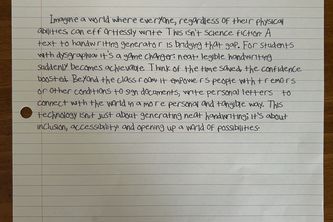 Imagine a world where everyone, regardless of their physical
abilities can effortlessly write This isn't science fiction A
text to handwriting generator is bridging that gap. For students
with dysgraphia it's a game changer: neat legible handwriting
suddenly becomes achievable. Think of the time saved, the confidence
boosted. Beyond the classroom it empowers people with tremors
or other conditions to sign documents, write personal letters to
connect with the world in a more personal and tangible way. This
technology isn't just about generating neat handwriting; it's about
inclusion, accessibility and opening up a world of possibilities.